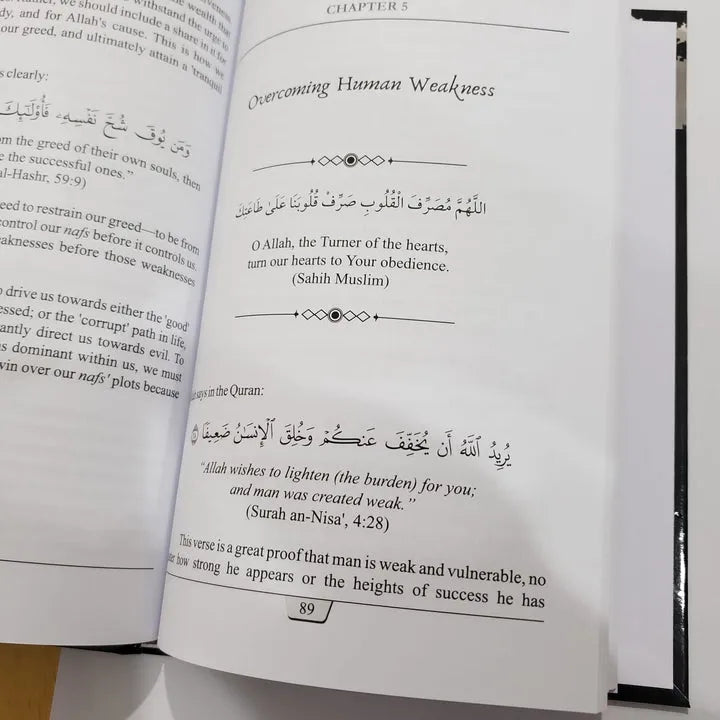 withstand the urge to
we should include a share in it for
and for Allah's cause. This is how we
our greed, and ultimately attain a 'tranquil
clearly:
وَمَن يُوقَ شُحَّ نَفْسِهِۦ فَأُو۟لَـٰٓئِكَ
the greed of their own souls, then
the successful ones.”
al-Hashr, 59:9)
to restrain our greed—to be from
control our nafs before it controls us.
weaknesses before those weaknesses
drive us towards either the 'good'
or the 'corrupt' path in life,
direct us towards evil. To
dominant within us, we must
win over our nafs' plots because
CHAPTER 5
Overcoming Human Weakness
اللَّهُمَّ مُصَرِّفَ الْقُلُوبِ صَرِّفْ قُلُوبَنَا عَلَىٰ طَاعَتِكَ
O Allah, the Turner of the hearts,
turn our hearts to Your obedience.
(Sahih Muslim)
says in the Quran:
يُرِيدُ ٱللَّهُ أَن يُخَفِّفَ عَنكُمْ وَخُلِقَ ٱلْإِنسَـٰنُ ضَعِيفًا
“Allah wishes to lighten (the burden) for you;
and man was created weak.”
(Surah an-Nisa', 4:28)
This verse is a great proof that man is weak and vulnerable, no
how strong he appears or the heights of success he has
89